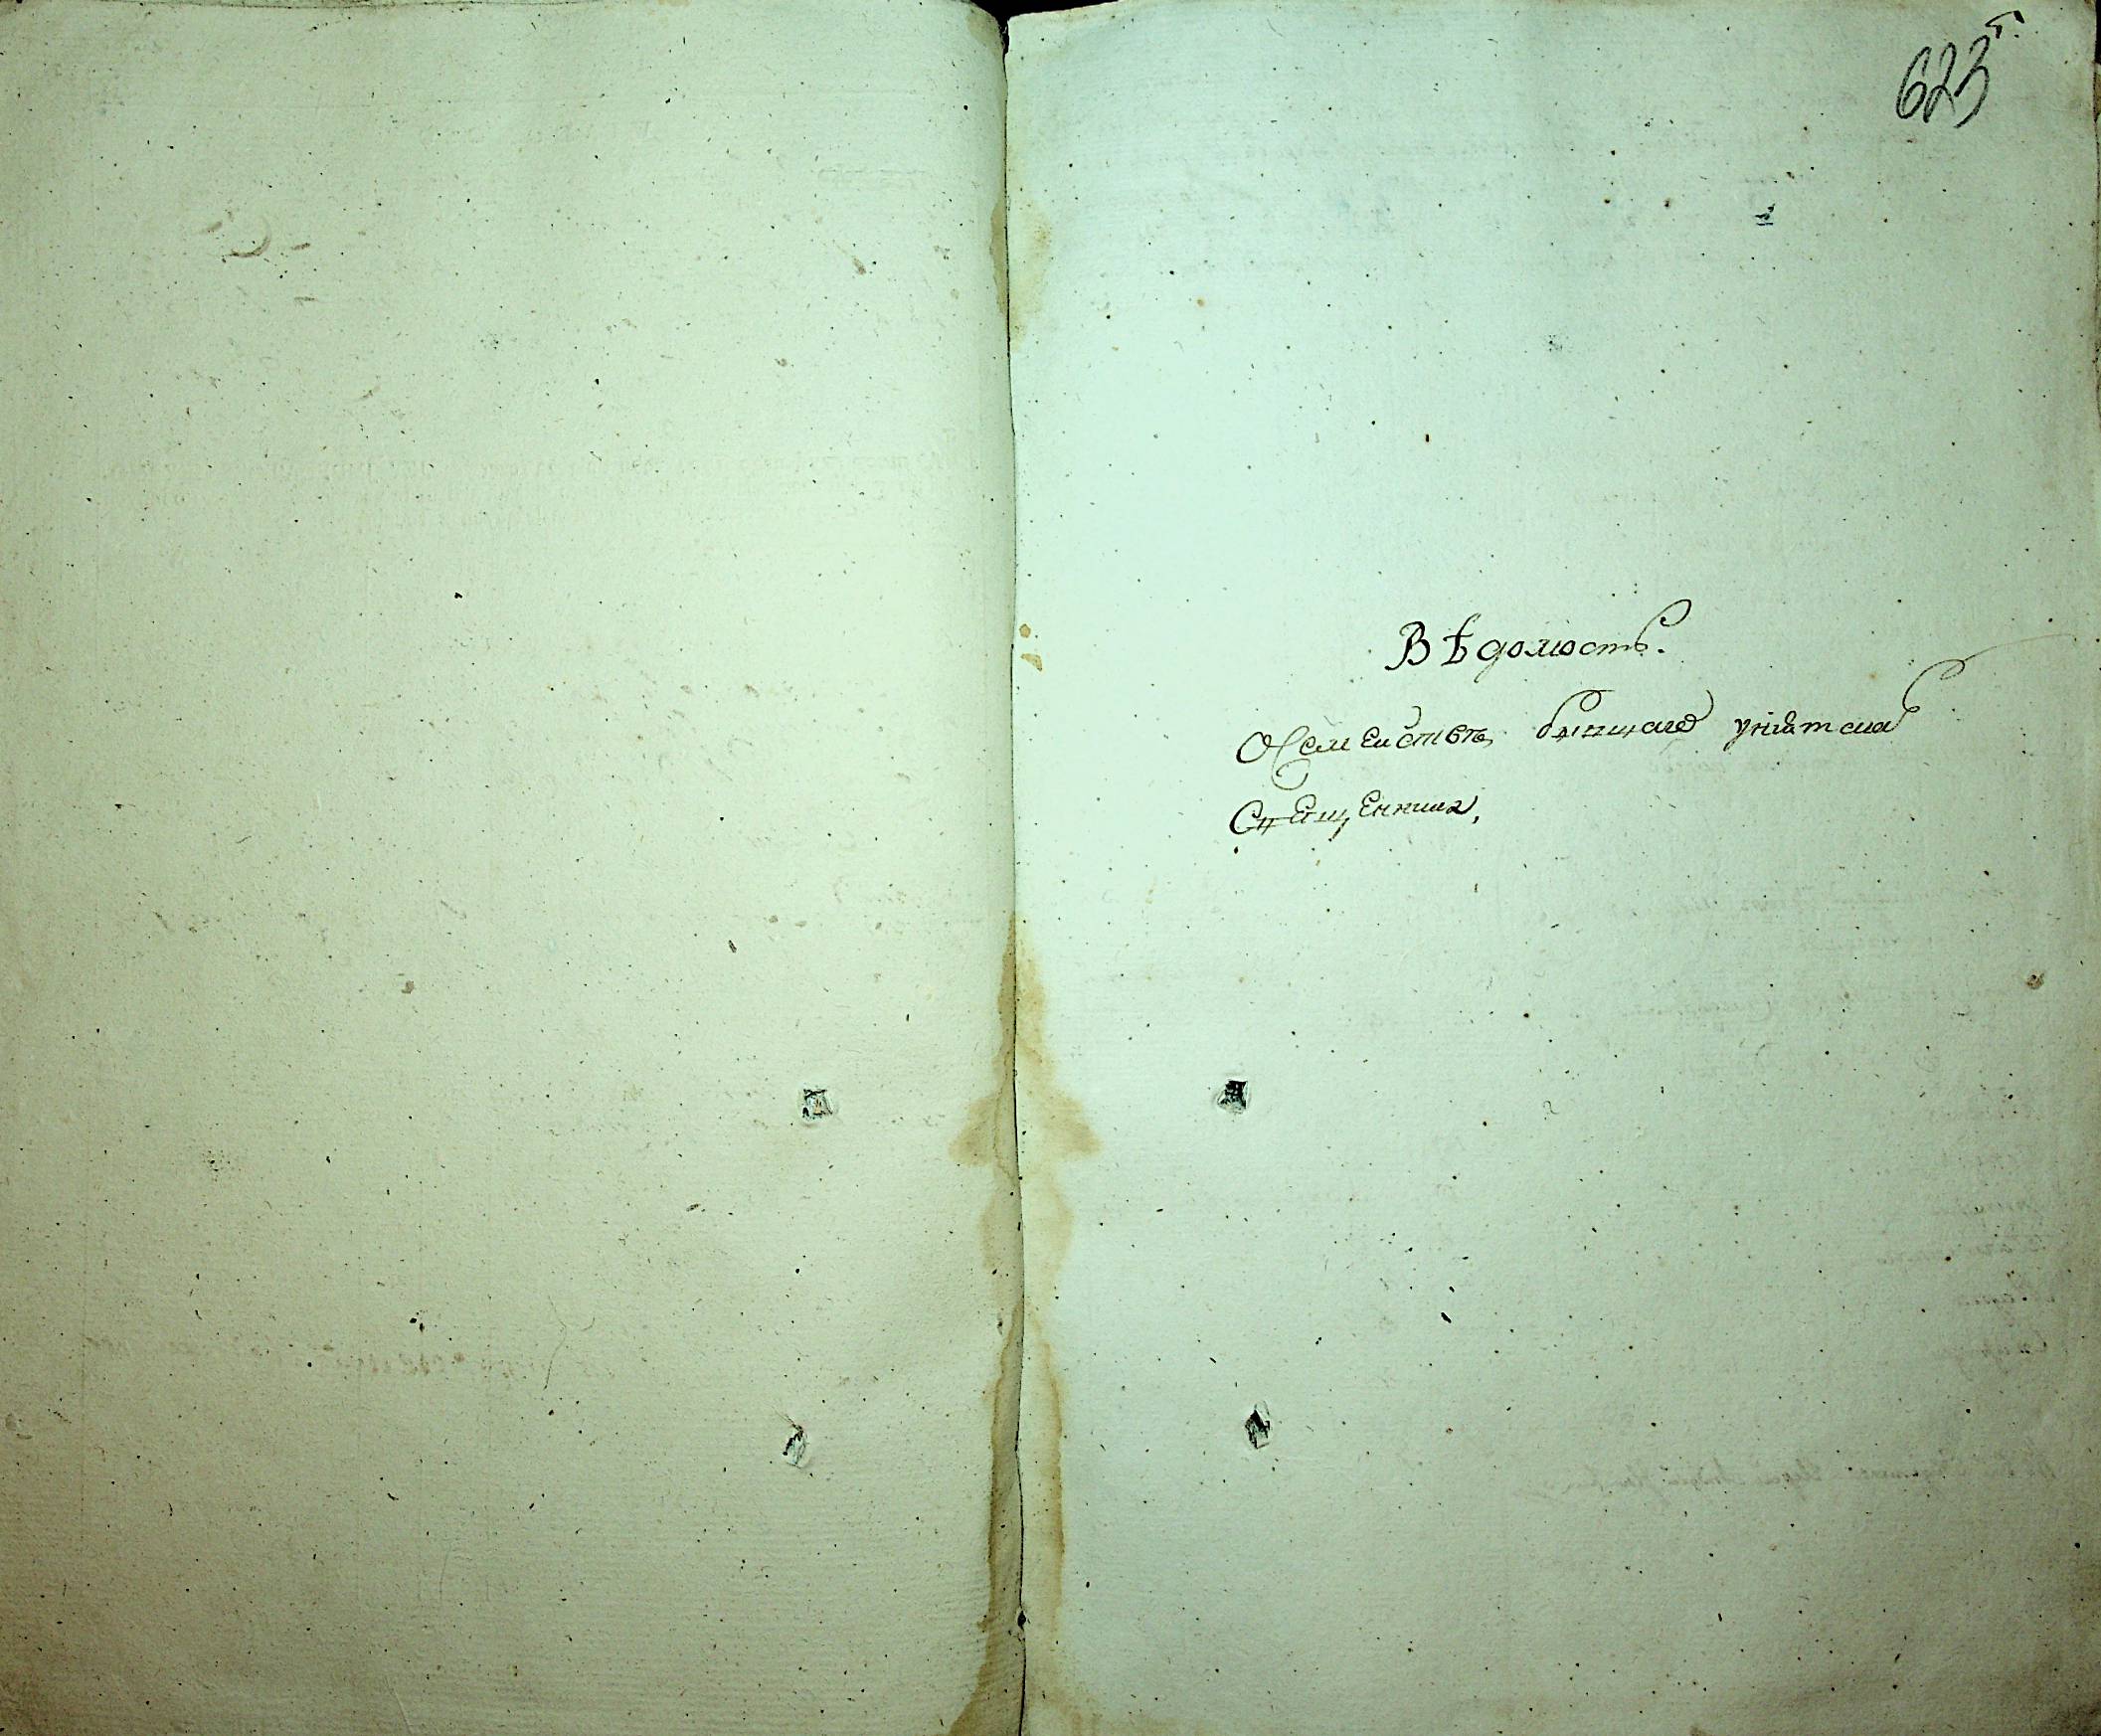 623г.
Вѣдомость.
О семействѣ бывшаго унiятскаго
Священника,